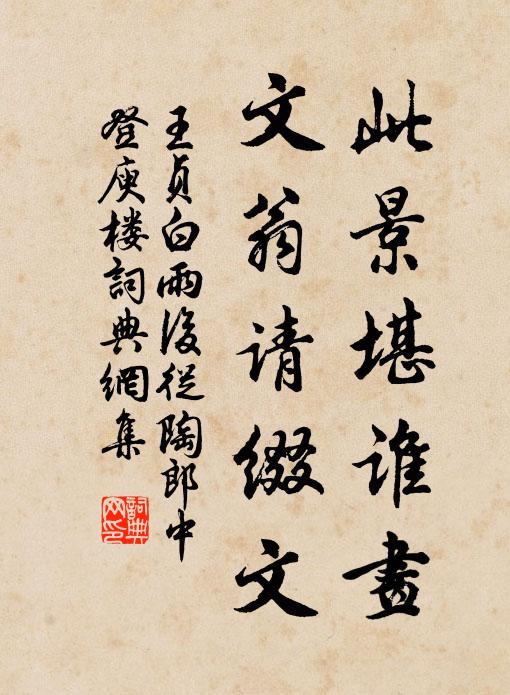 此景堪谁畫
文翁请缀文
王貞白雨後從陶郎中
登庾楼詞典網集
詞典网印